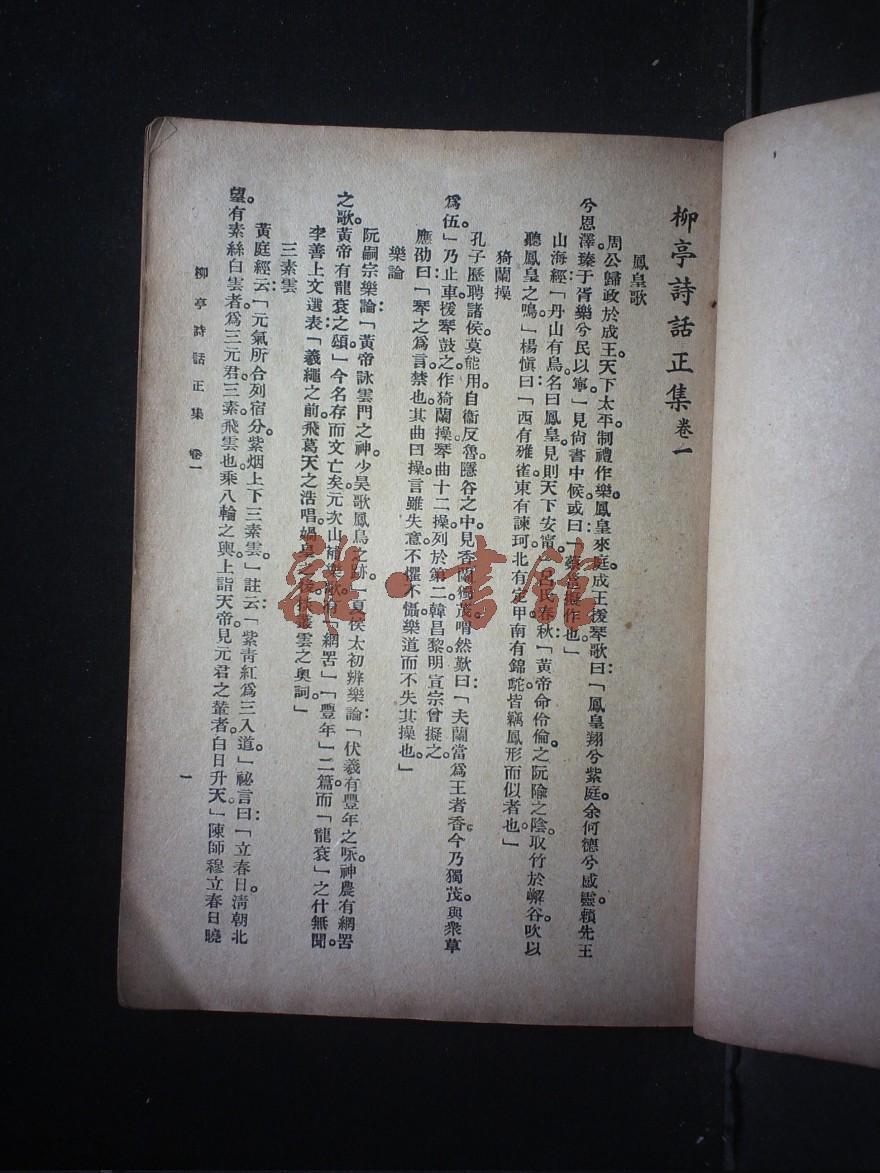 柳亭詩話正集 卷一
鳳皇歌
周公歸政於成王。天下太平。制禮作樂。鳳皇來庭。成王援琴歌曰：「鳳皇翔兮紫庭。余何德兮感靈。賴先王
兮恩澤臻。于胥樂兮民以寧」見尙書中候。或曰：「蔡邕擬作也」
山海經「丹山有鳥。名曰鳳皇。見則天下安甯」呂氏春秋：「黃帝命伶倫之阮隃之陰。取竹於嶰谷。吹以
聽鳳皇之鳴」楊愼曰：「西有 雀。東有諫珂。北有定甲。南有錦鴕。皆竊鳳形而似者也。」
猗蘭操
孔子歷聘諸侯。莫能用。自衞反魯。隱谷之中。見香蘭獨茂。喟然歎曰：「夫蘭當爲王者香。今乃獨茂。與衆草
爲伍」乃止車。援琴鼓之。作猗蘭操。琴曲十二操。列於第二。韓昌黎明宣宗曾擬之。
應劭曰：「琴之爲言禁也。其曲曰操。言雖失意。不懼不懾。樂道而不失其操也。」
樂論
阮嗣宗樂論：「黃帝詠雲門之神。少昊歌鳳鳥之跡。」夏侯太初辨樂論：「伏羲有豐年之咏。神農有網罟
之歌。黃帝有龍袞之頌」今名存而文亡矣。元次山補樂歌有「網罟」「豐年」二篇。而「龍袞」之什無聞
李善上文選表：「羲繩之前。飛葛天之浩唱。媧皇之後。 叢雲之奧詞」
三素雲
黃庭經云：「元氣所合列宿分。紫烟上下三素雲」註云：「紫靑紅爲三入道。」祕言曰：「立春日淸朝北
望。有素絲白雲者。爲三元君三素飛雲也。乘八輪之輿。上詣天帝。見元君之輦者。白日升天」陳師穆立春日曉
柳亭詩話正集 卷一
一
雜·書館